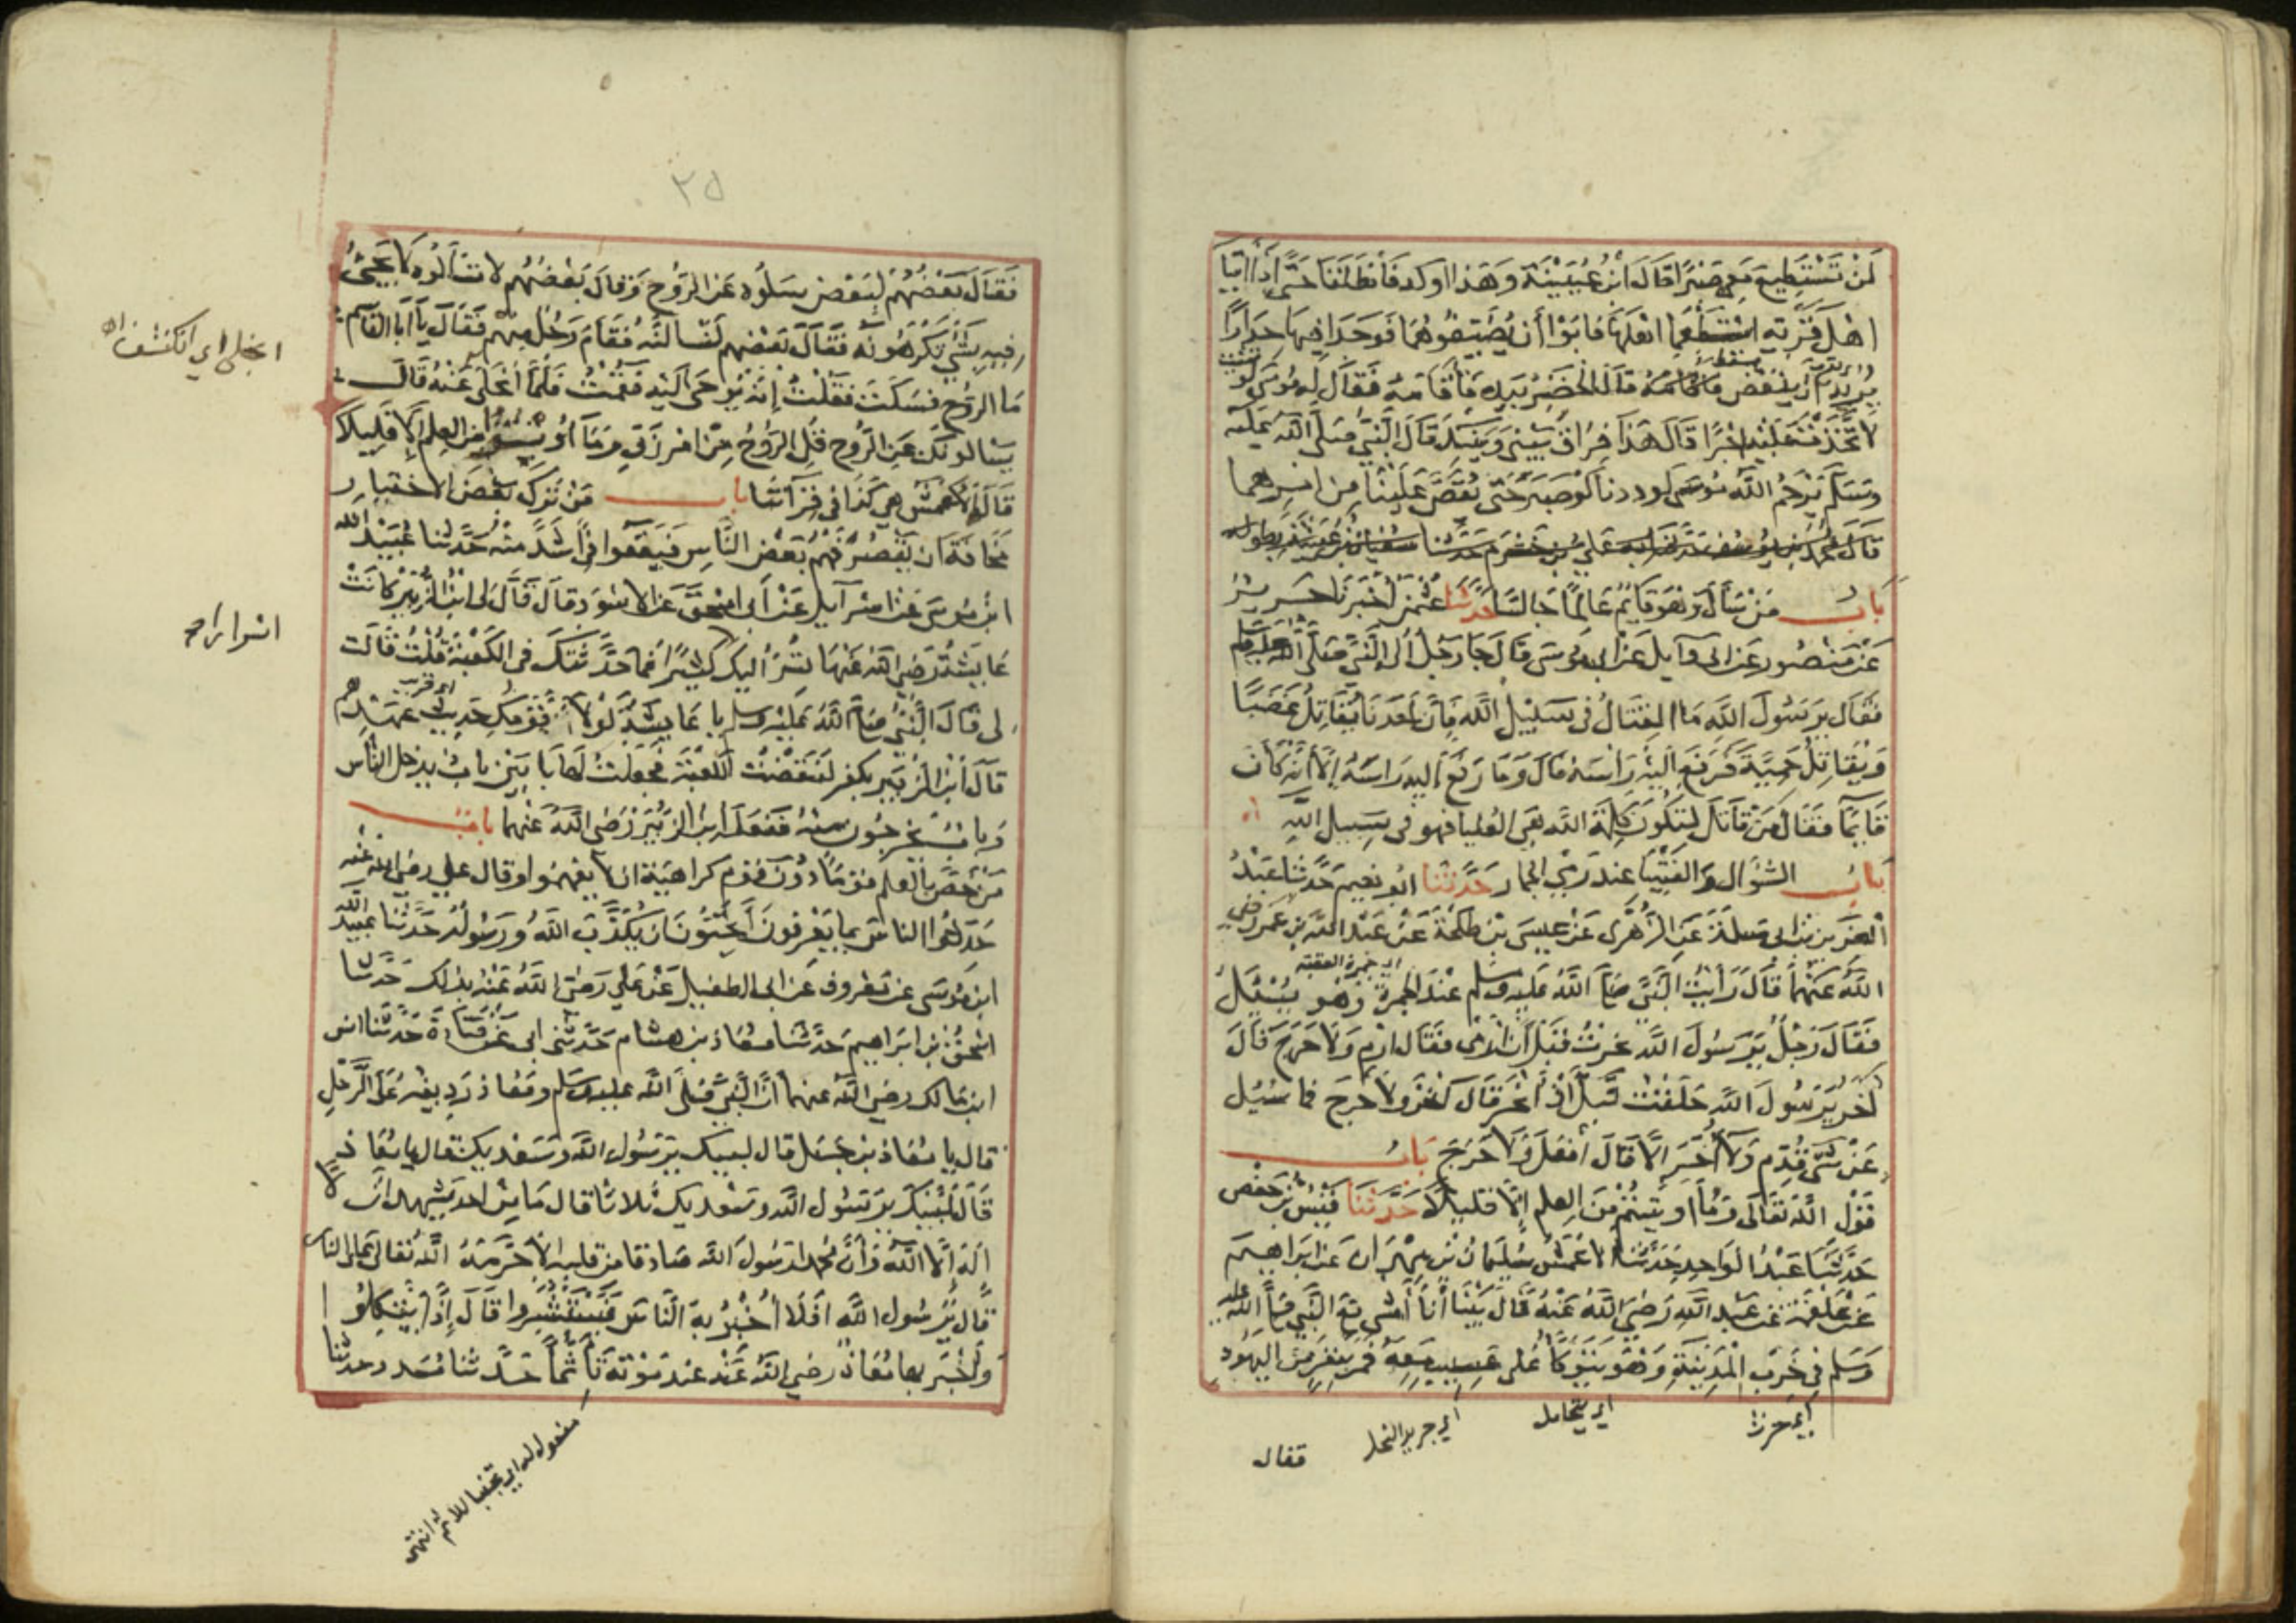 لَنْ تَسْتَطِيعَ مَعِي صَبْرًا قَالَ ابْنُ عُيَيْنَةَ وَهَذَا اوكد فَانْطَلَقَا حَتَّى اذَا اتَيَا
اهْلَ قَرْيَةٍ اسْتَطْعَمَا اهْلَهَا فَابَوْا أَن يُضَيِّفُوهُمَا فَوَجَدَا فِيهَا جِدَارًا
يُرِيدُ أن يَنْقَضَّ فَاقَامَهُ قَالَ الْخَضِرُ بِيَدِهِ فَأَقَامَهُ فَقَالَ لَهُ مُوسَى لَوْ شئت
لَاتَّخَذْتَ عَلَيْهِ اجْرًا قَالَ هَذَا فِرَاقُ بَيْنِي وَبَيْنِكَ قَالَ النَّبِيُّ صَلَّى اللَّهُ عَلَيْهِ
وَسَلَّمَ يَرْحَمُ اللَّهُ مُوسَى لَوَدِدْنَا لَوْ صَبَرَ حَتَّى يُقَصَّ عَلَيْنَا مِنْ امْرِهِمَا
قَالَ مُحَمَّدُ بْنُ يُوسُفَ حَدَّثَنَا بِهِ عَلِيُّ بْنُ خَشْرَمٍ حَدَّثَنَا سُفْيَانُ بْنُ عُيَيْنَةَ بِطُولِهِ
بَابُ مَنْ سَأَلَ وَهُوَ قَائِمٌ عَالِمًا جَالِسًا حَدَّثَنَا عُثْمٰنُ أَخْبَرَنَا جَرِيرٌ
عَنْ مَنْصُورٍ عَنْ ابى وَآيِلٍ عَنْ ابى مُوسَى قَالَ جَا رَجُلٌ أِلَى النَّبِيِّ صَلَّى اللَّهُ عَلَيْهِ وَسَلَّمَ
فَقَالَ يَرَسُولَ اللَّهِ مَا الْقِتَالُ فِى سَبِيْلِ اللَّهِ فَإِنَّ أَحَدَنَا يُقَاتِلُ غَضَبًا
وَيُقَاتِلُ حَمِيَّةً فَرَفَعَ إِلَيْهِ رَاْسَهُ قَالَ وَمَا رَفَعَ إِلَيْهِ رَاسَهُ إِلَّا أَنَّهُ كَانَ
قَايِمًا فَقَالَ مَنْ قَاتَلَ لِتَكُونَ كَلِمَةُ اللَّهِ هِىَ الْعُلْيَا فَهُوَ فى سَبِيلِ اللَّهِ
بَابُ السُّؤَالِ وَالْفُتْيَا عِنْدَ رَمْيِ الجِمَارِ حَدَّثَنَا ابُو نُعَيْمٍ حَدَّثَنَا عَبْدُ
الْعَزِيزِ بْنُ ابى سَلَمَةَ عَنِ الزُّهْرِى عَنْ عِيسَى بْنِ طَلْحَةَ عَنْ عَبْدِ اللَّهِ بْنِ عَمْرٍو رضى
اللَّهُ عَنْهُمَا قَالَ رَأَيْتُ النَّبِيَّ صَلَّى اللَّهُ عَلَيْهِ وَسَلَّمَ عِنْدَ الْجَمْرَةِ وَهُوَ يُسْئَلُ
اى جمرة العقبة
فَقَالَ رَجُلٌ يَرَسُولَ اللَّهِ نَحَرْتُ قَبْلَ أَنْ ارْمِى فَقَالَ ارْمِ وَلَا حَرَجَ قَالَ
آخَرُ يَرَسُولَ اللَّهِ حَلَقْتُ قَبْلَ أَنْ أَنْحَرَ قَالَ انْحَرْ وَلَا حَرَجَ فَمَا سُئِلَ
عَنْ شَىْءٍ قُدِّمَ وَلَا أُخِّرَ إِلَّا قَالَ افْعَلْ وَلَا حَرَجَ بَابُ
قَوْلِ اللَّهِ تَعَالَى وَمَا اوتِيتُمْ مِنَ الْعِلْمِ إِلَّا قَلِيلًا حَدَّثَنَا قَيْسُ بْنُ حَفْصٍ
حَدَّثَنَا عَبْدُ الْوَاحِدِ حَدَّثَنَا الْاعْمَشُ سُلَيْمَانُ بْنُ مِهْرَانَ عَنْ ابْرَاهِيمَ
عَنْ عَلْقَمَةَ عَنْ عَبْدِ اللَّهِ رَضِيَ اللَّهُ عَنْهُ قَالَ بَيْنَا أَنَا أَمْشِى مَعَ النَّبِيِّ صَلَّى اللَّهُ عليه
وَسَلَّمَ فِى خَرِبِ الْمَدِينَةِ وَهُوَ يَتَوَكَّأُ عَلَى عَسِيبٍ مَعَهُ فَمَرَّ بِنَفَرٍ مِنَ الْيَهُودِ
اى يتحامل
اى جريد النخل
فقال
٢٥
فَقَالَ بَعْضُهُمْ لِبَعْضٍ سَلُوهُ عَنِ الرُّوحِ وَقَالَ بَعْضُهُمْ لَا تَسْأَلُوهُ لَا يَجِئُ
فِيهِ بِشَىْءٍ تَكْرَهُونَهُ فَقَالَ بَعْضُهُمْ لَنَسْالَنَّهُ فَقَامَ رَجُلٌ مِنْهُمْ فَقَالَ يَا أَبَا الْقَاسِمِ
مَا الرُّوحُ فَسَكَتَ فَقُلْتُ إِنَّهُ يُوحَى إِلَيْهِ فَقُمْتُ فَلَمَّا انْجَلَى عَنْهُ قَالَ
يَسْالُونَكَ عَنِ الرُّوحِ قُلِ الرُّوحُ مِنْ امْرِ رَبِّي وَمَا أوتوا مِنَ الْعِلْمِ إِلَّا قَلِيلًا
قَالَ الْاعْمَشُ هِيَ كَذَا فِى قِرَآتِنَا بَابُ مَنْ تَرَكَ بَعْضَ الاخْتِيَارِ
مَخَافَةَ انْ يَقْصُرَ فَهْمُ بَعْضِ النَّاسِ فَيَقَعُوا فِى أَشَدَّ مِنْهُ حَدَّثَنَا عُبَيْدُ الله
ابْنُ مُوسَى عَنْ اسْرَآيِلَ عَنْ أَبى اسْحٰقَ عَنِ الْاسْوَدِ قَالَ قَالَ لِى ابْنُ الزُّبَيْرِ كَانَتْ
عَايِشَةُ رَضِيَ اللَّهُ عَنْهَا تُسِرُّ الَيْكَ كَثِيرًا فَمَا حَدَّثَتْكَ فِى الْكَعْبَةِ قُلْتُ قَالَتْ
لِى قَالَ النَّبِيُّ صَلَّى اللَّهُ عَلَيْهِ وَسَلَّمَ يَا عَايِشَةُ لَوْلَا قَوْمُكِ حَدِيثٌ عَهْدُهُمْ
قَالَ ابْنُ الزُّبَيْرِ بِكُفْرٍ لَنَقَضْتُ الْكَعْبَةَ فَجَعَلْتُ لَهَا بَابَيْنِ بَابٌ يَدْخُلُ النَّاسُ
وَبَابٌ يَخْرُجُونَ مِنْهُ فَفَعَلَهُ ابْنُ الزُّبَيْرِ رَضِىَ اللَّهُ عَنْهُمَا بَابُ
مَنْ خَصَّ بِالْعِلْمِ قَوْمًا دُونَ قَوْمٍ كَرَاهِيَةَ انْ لَا يَفْهَمُوا وَقَالَ عَلِي رَضِيَ اللَّهُ عَنْهُ
حَدِّثُوا النَّاسَ بِمَا يَعْرِفُونَ أَتُحِبُّونَ انْ يُكَذَّبَ اللَّهُ وَرَسُولُهُ حَدَّثَنَا عُبَيْدُ الله
ابْنُ مُوسَى عَنْ مَعْرُوفٍ عَنْ ابى الطُّفَيْلِ عَنْ عَلِي رَضِىَ اللَّهُ عَنْهُ بِذَلِكَ حَدَّثَنَا
اسْحٰقُ بْنُ ابْرَاهِيمَ حَدَّثَنَا مُعَاذُ بْنُ هِشَامٍ حَدَّثَنِى ابى عَنْ قَتَادَةَ حَدَّثَنَا انَسُ
ابْنُ مَالِكٍ رَضِيَ اللَّهُ عَنْهُمَا أَنَّ النَّبِيَّ صَلَّى اللَّهُ عَلَيْهِ وَسَلَّمَ وَمُعَاذٌ رَدِيفُهُ عَلَى الرَّحْلِ
قَالَ يَا مُعَاذُ بْنَ جَبَلٍ قَالَ لَبَّيْكَ يَرَسُولَ اللَّهِ وَسَعْدَيْكَ قَالَ يَا مُعَاذُ
قَالَ لَبَّيْكَ يَرَسُولَ اللَّهِ وَسَعْدَيْكَ ثَلَاثًا قَالَ مَا مِنْ احَدٍ يَشْهَدُ انْ لَا
الَهَ إِلَّا اللَّهُ وَأَنَّ مُحَمَّدًا رَسُولُ اللَّهِ صَادِقًا مِنْ قَلْبِهِ إِلَّا حَرَّمَهُ اللَّهُ تَعَالَى عَلَى النَّارِ
قَالَ يَرَسُولَ اللَّهِ افَلَا أُخْبِرُ بِهِ النَّاسَ فَيَسْتَبْشِرُوا قَالَ إِذًا يَتَّكِلُوا
وَأَخْبَرَ بِهَا مُعَاذٌ رَضِيَ اللَّهُ عَنْهُ عِنْدَ مَوْتِهِ تَأَثُّمًا حَدَّثَنَا مُسَدَّد حدثنا
انجلى اى انكشف اه
اسرار اه
مفعول له اى تجنبا للاثم انتهى